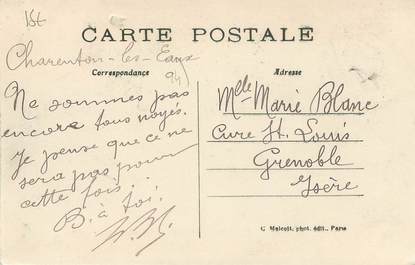 15t
CARTE POSTALE
Charenton-les-Eaux
94)
Correspondance
Ne sommes pas
encore tous noyés.
Je pense que ce ne
sera pas pour
cette fois.
B. à toi!
Adresse
Mlle Marie Blanc
Cure St. Louis
Grenoble
Isère
C. Malcuit, phot. édit., Paris